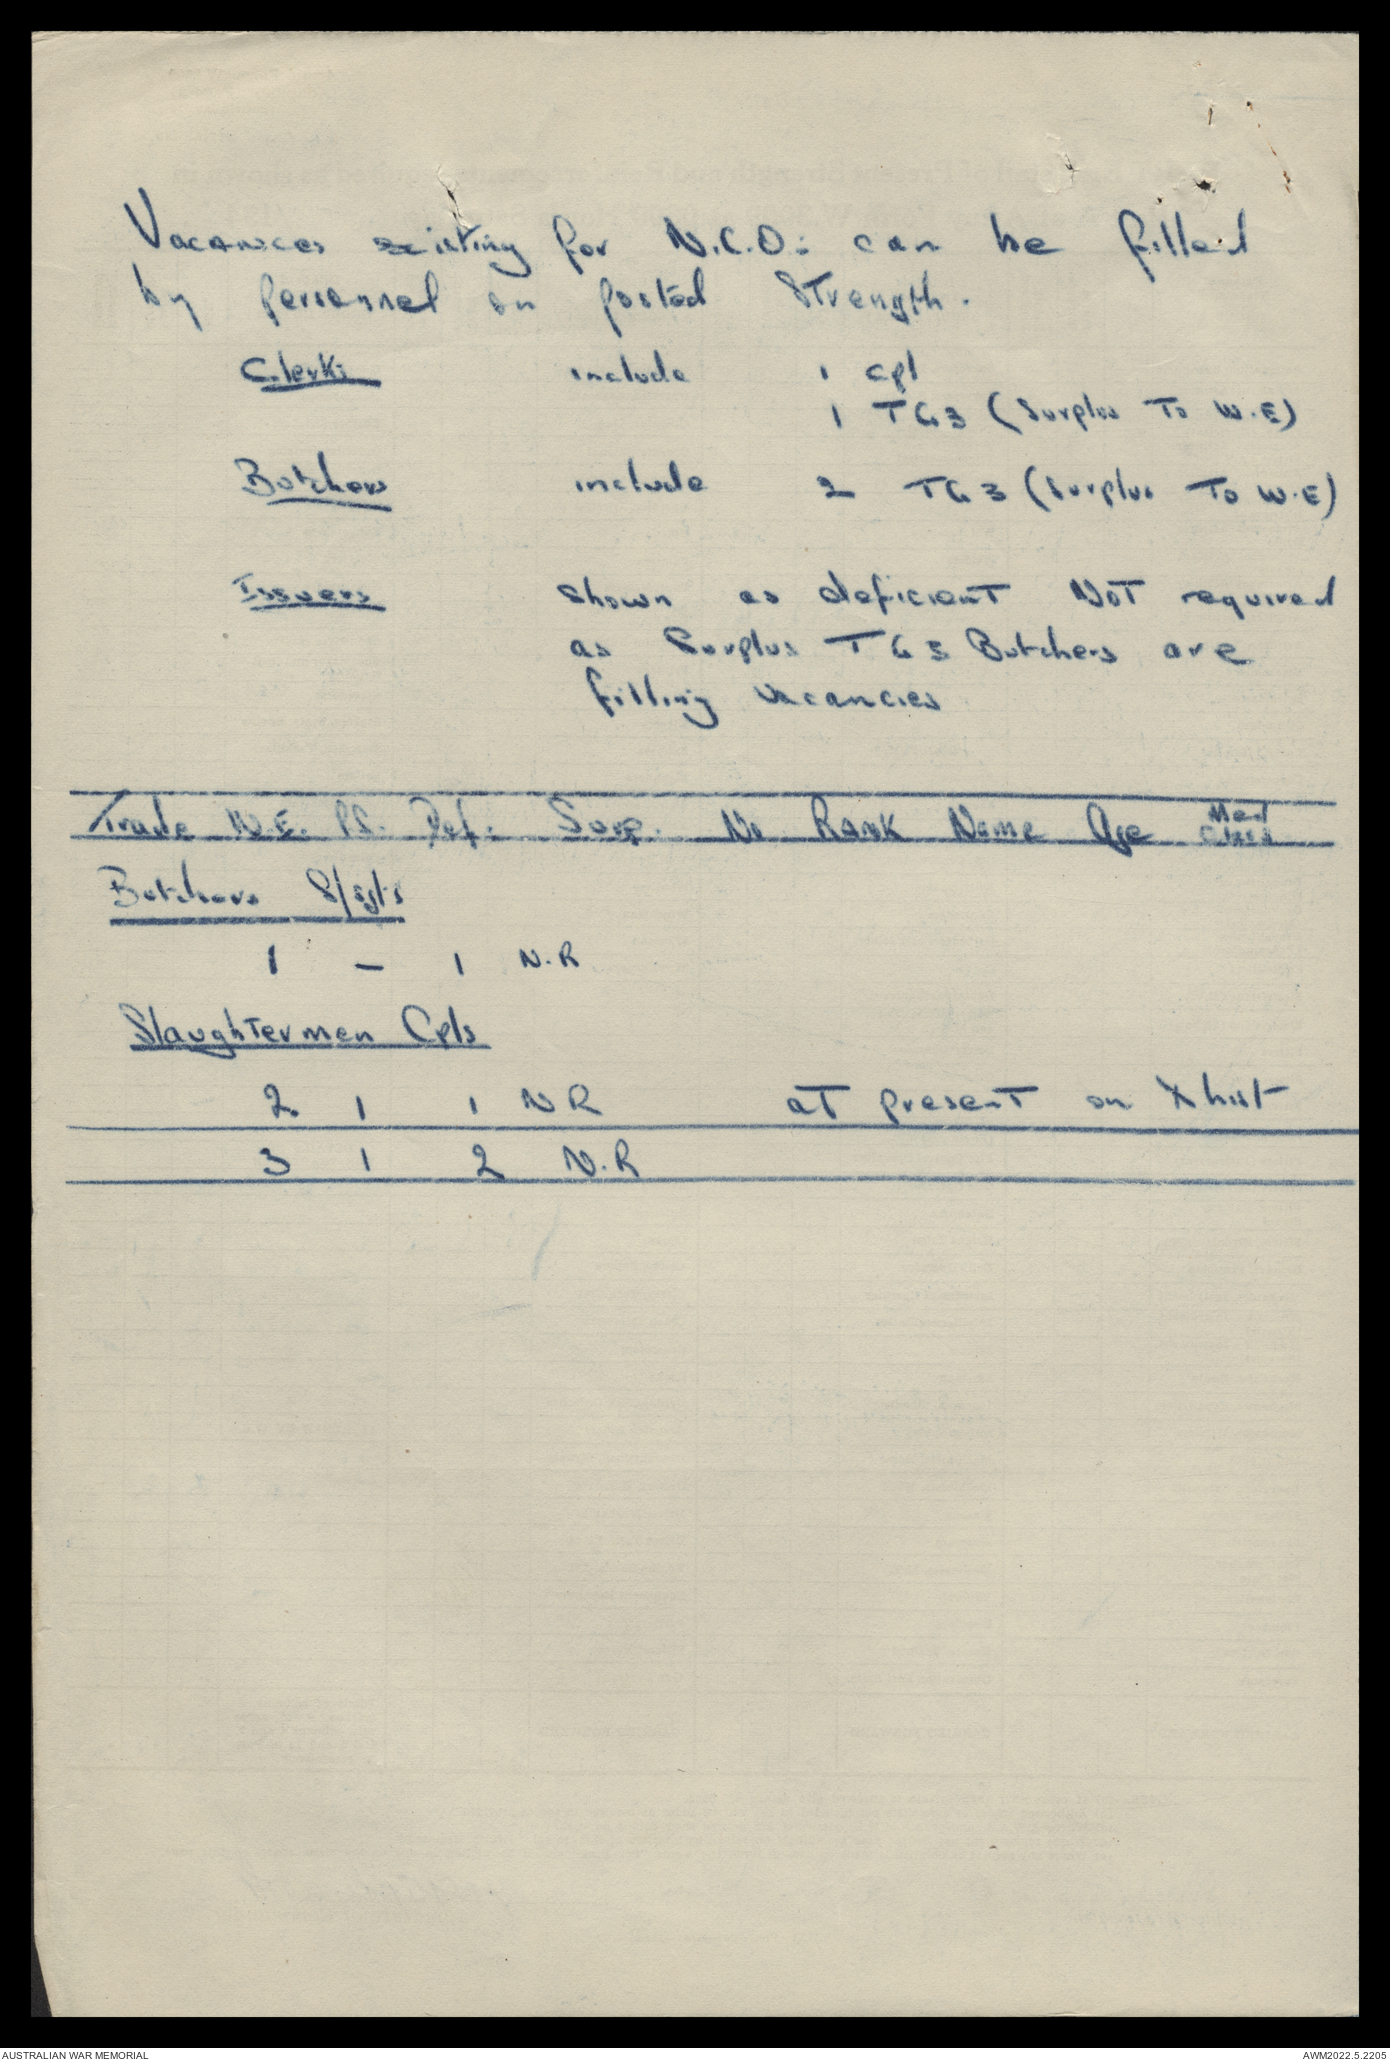 Vacancies existing for N.C.O's can be filled
by personnel on posted strength.
Clerks include 1 Cpl
1 TG3 (Surplus To W.E)
Butchers include 2 TG3 (Surplus To W.E)
Issuers shown as deficient NOT required
as Surplus TG3 Butchers are
filling vacancies
Trade W.E. P.S. Def. Surp. No Rank Name Age Med Class
Butchers S/Sgts
1 - 1 N.R
Slaughtermen Cpls
2 1 1 NR at present on X list
3 1 2 N.R
AUSTRALIAN WAR MEMORIAL AWM2022.5.2205